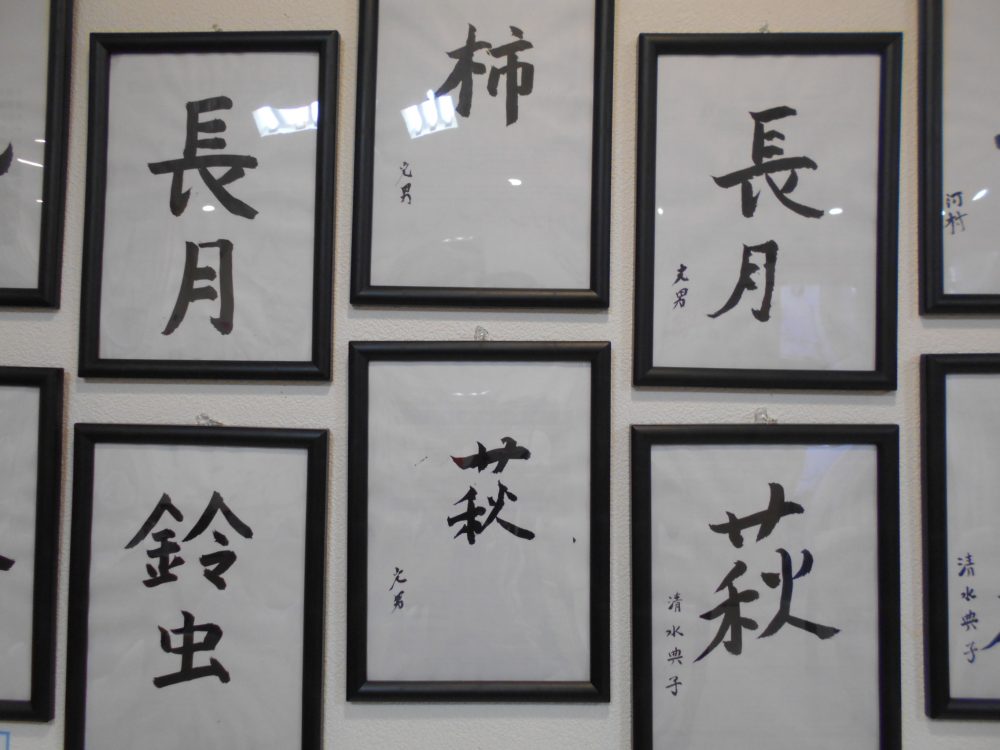 長月
柿
元男
長月
元男
河村
鈴虫
萩
元男
萩
清水典子
清水典子